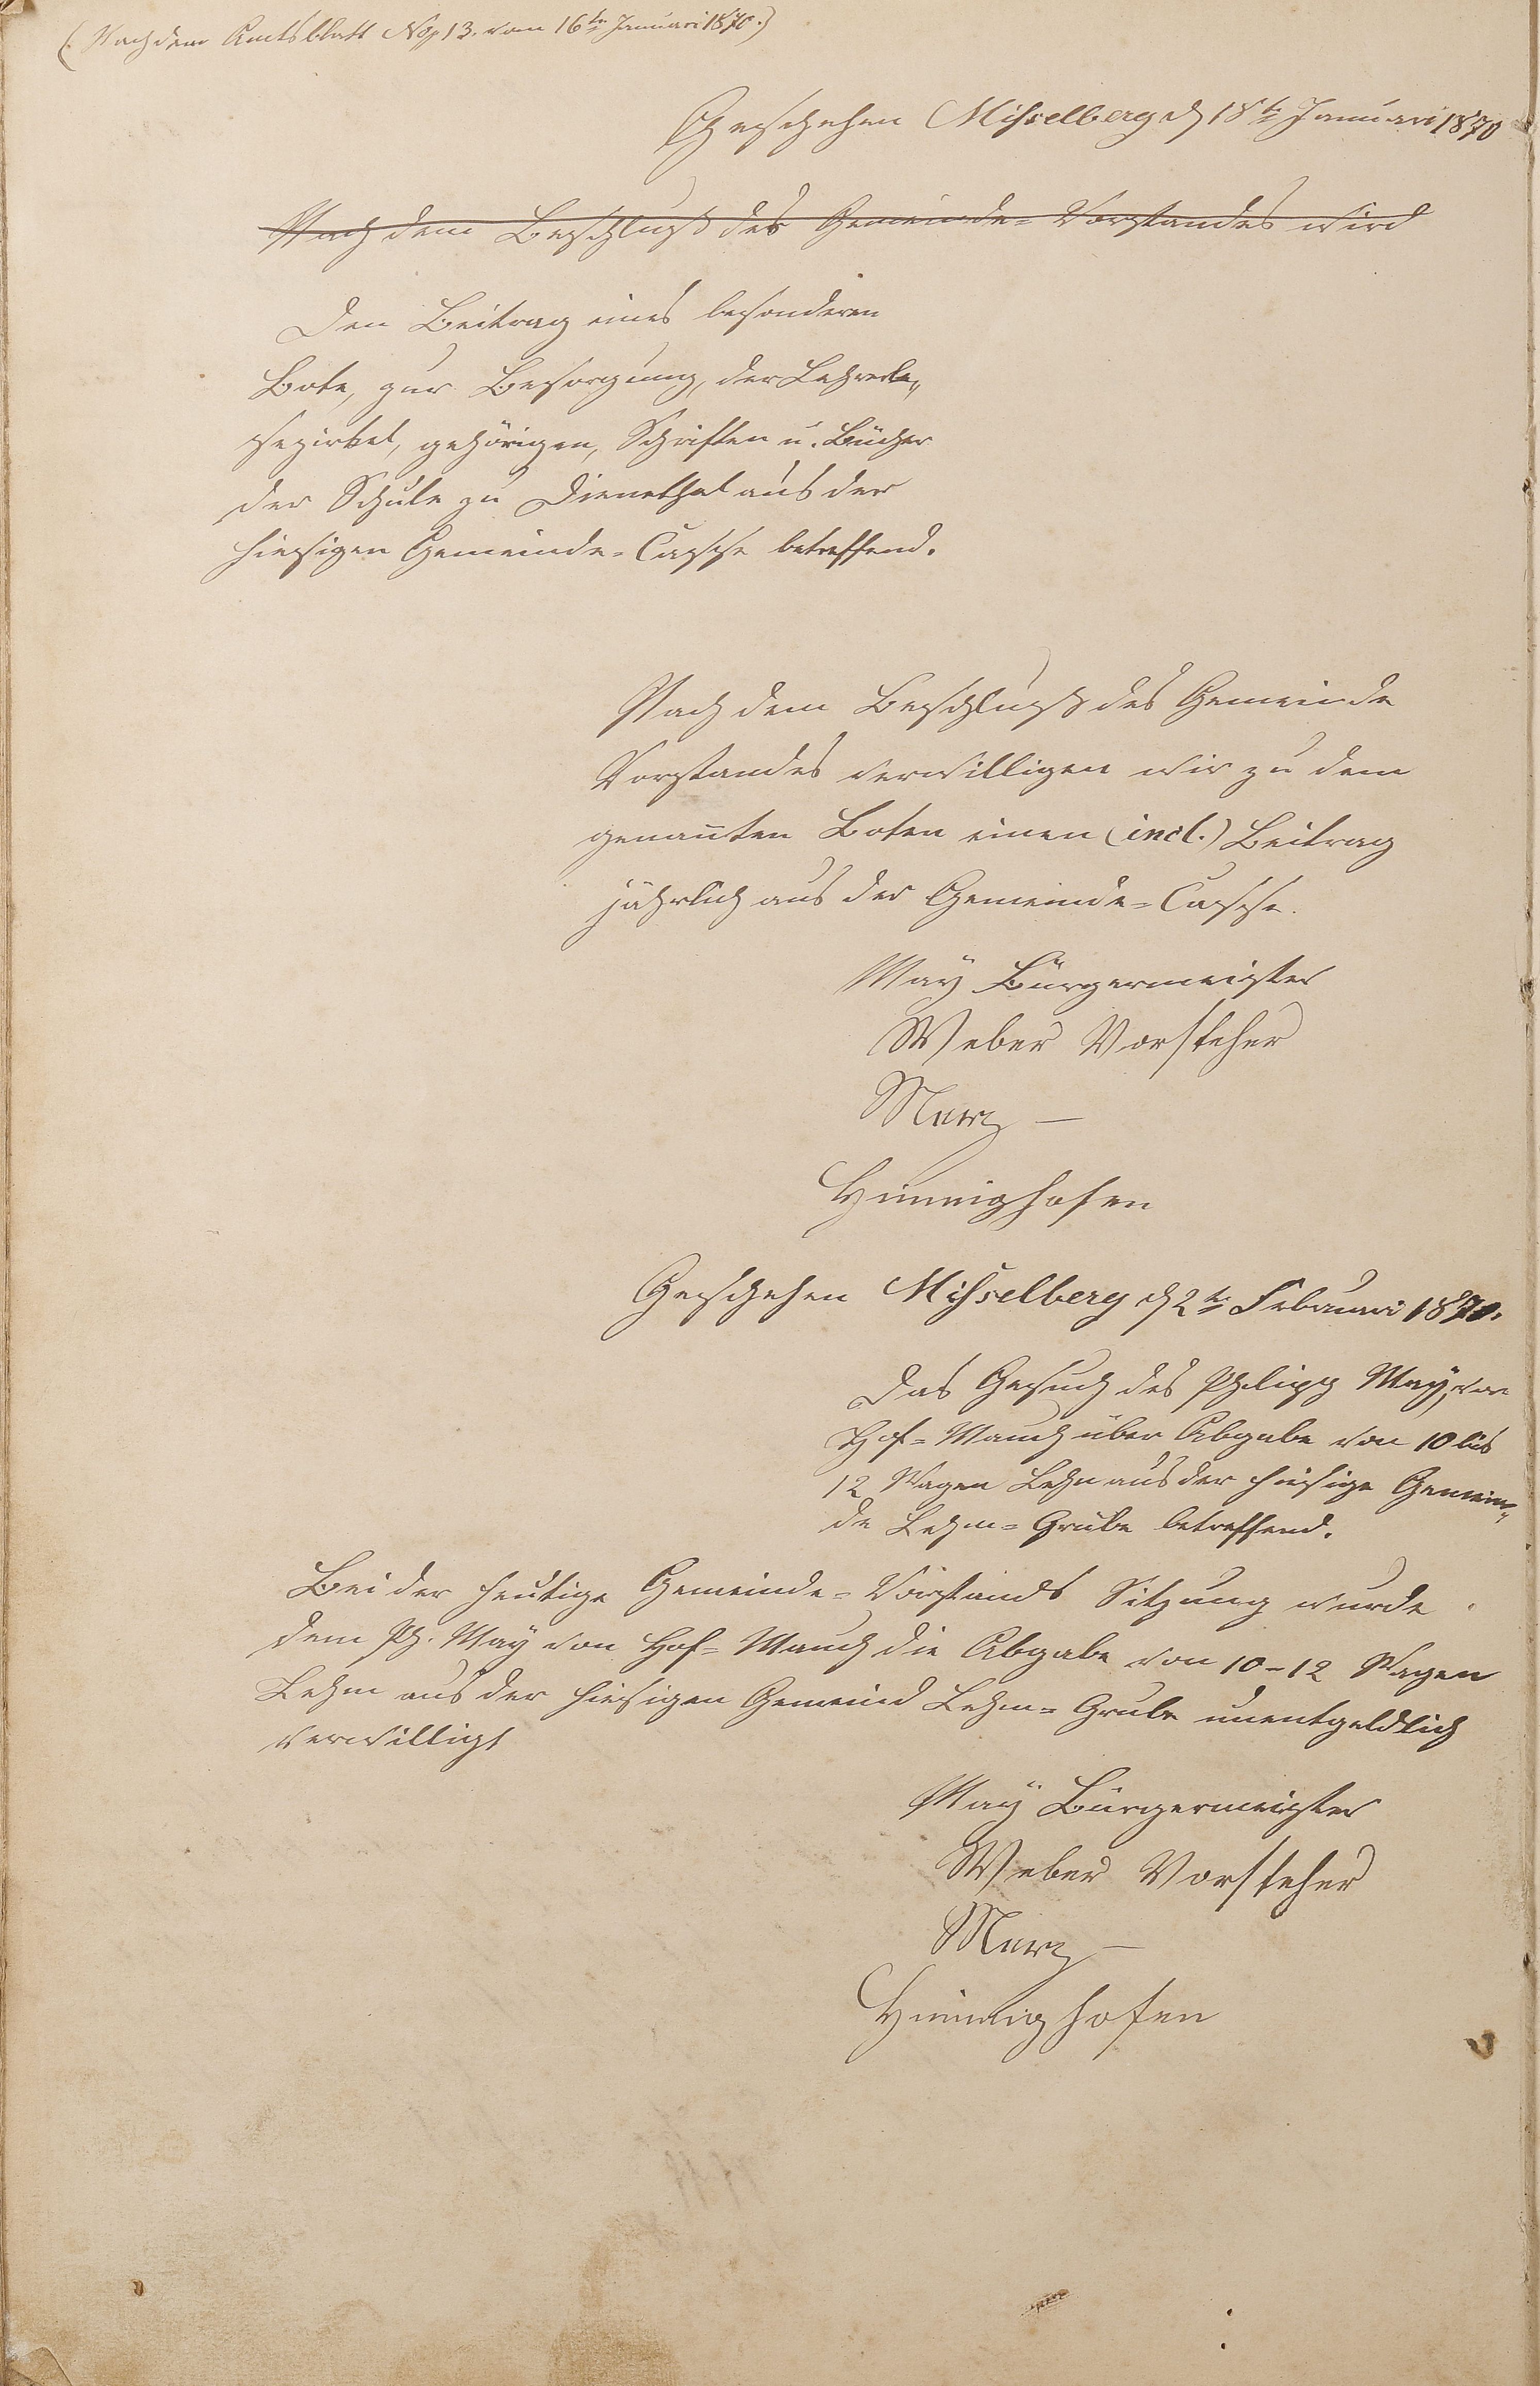 (Nach dem Amtsblatt No 13. vom 16ten Januari 1870.)
Geschehen Misselberg d 18te Januari 1870
Nach dem Beschluß des Gemeinde-Vorstandes wird
Den Beitrag eines besonderen
Bote, zur Besorgung, der Lehrerle„
sezirkel, gehörigen, Schriften u. Bücher
der Schule zu Dienethal aus der
hiesigen Gemeinde-Casse betreffend.
Nach dem Beschluß des Gemeinde
Vorstandes verwilligen wir zu dem
genannten Boten einen (incl.) Beitrag
jährlich aus der Gemeinde-Casse.
May Bürgermeister
Weber Vorsteher
Merz —
Himmighofen
Geschehen Misselberg d 2te Februari 1870.
Das Gesuch des Philipp May, von
Hof-Mauch über Abgabe von 10 bis
12 Wagen Lehm aus der hiesige Gemein„
de Lehm-Grube betreffend.
Bei der heutige Gemeinde-Vorstands Sitzung wurde
dem Ph. May von Hof-Mauch die Abgabe von 10-12 Wagen
Lehm aus der hiesigen Gemeind Lehm-Grube unentgeldlich
verwilligt
May Bürgermeister
Weber Vorsteher
Merz —
Himmighofen